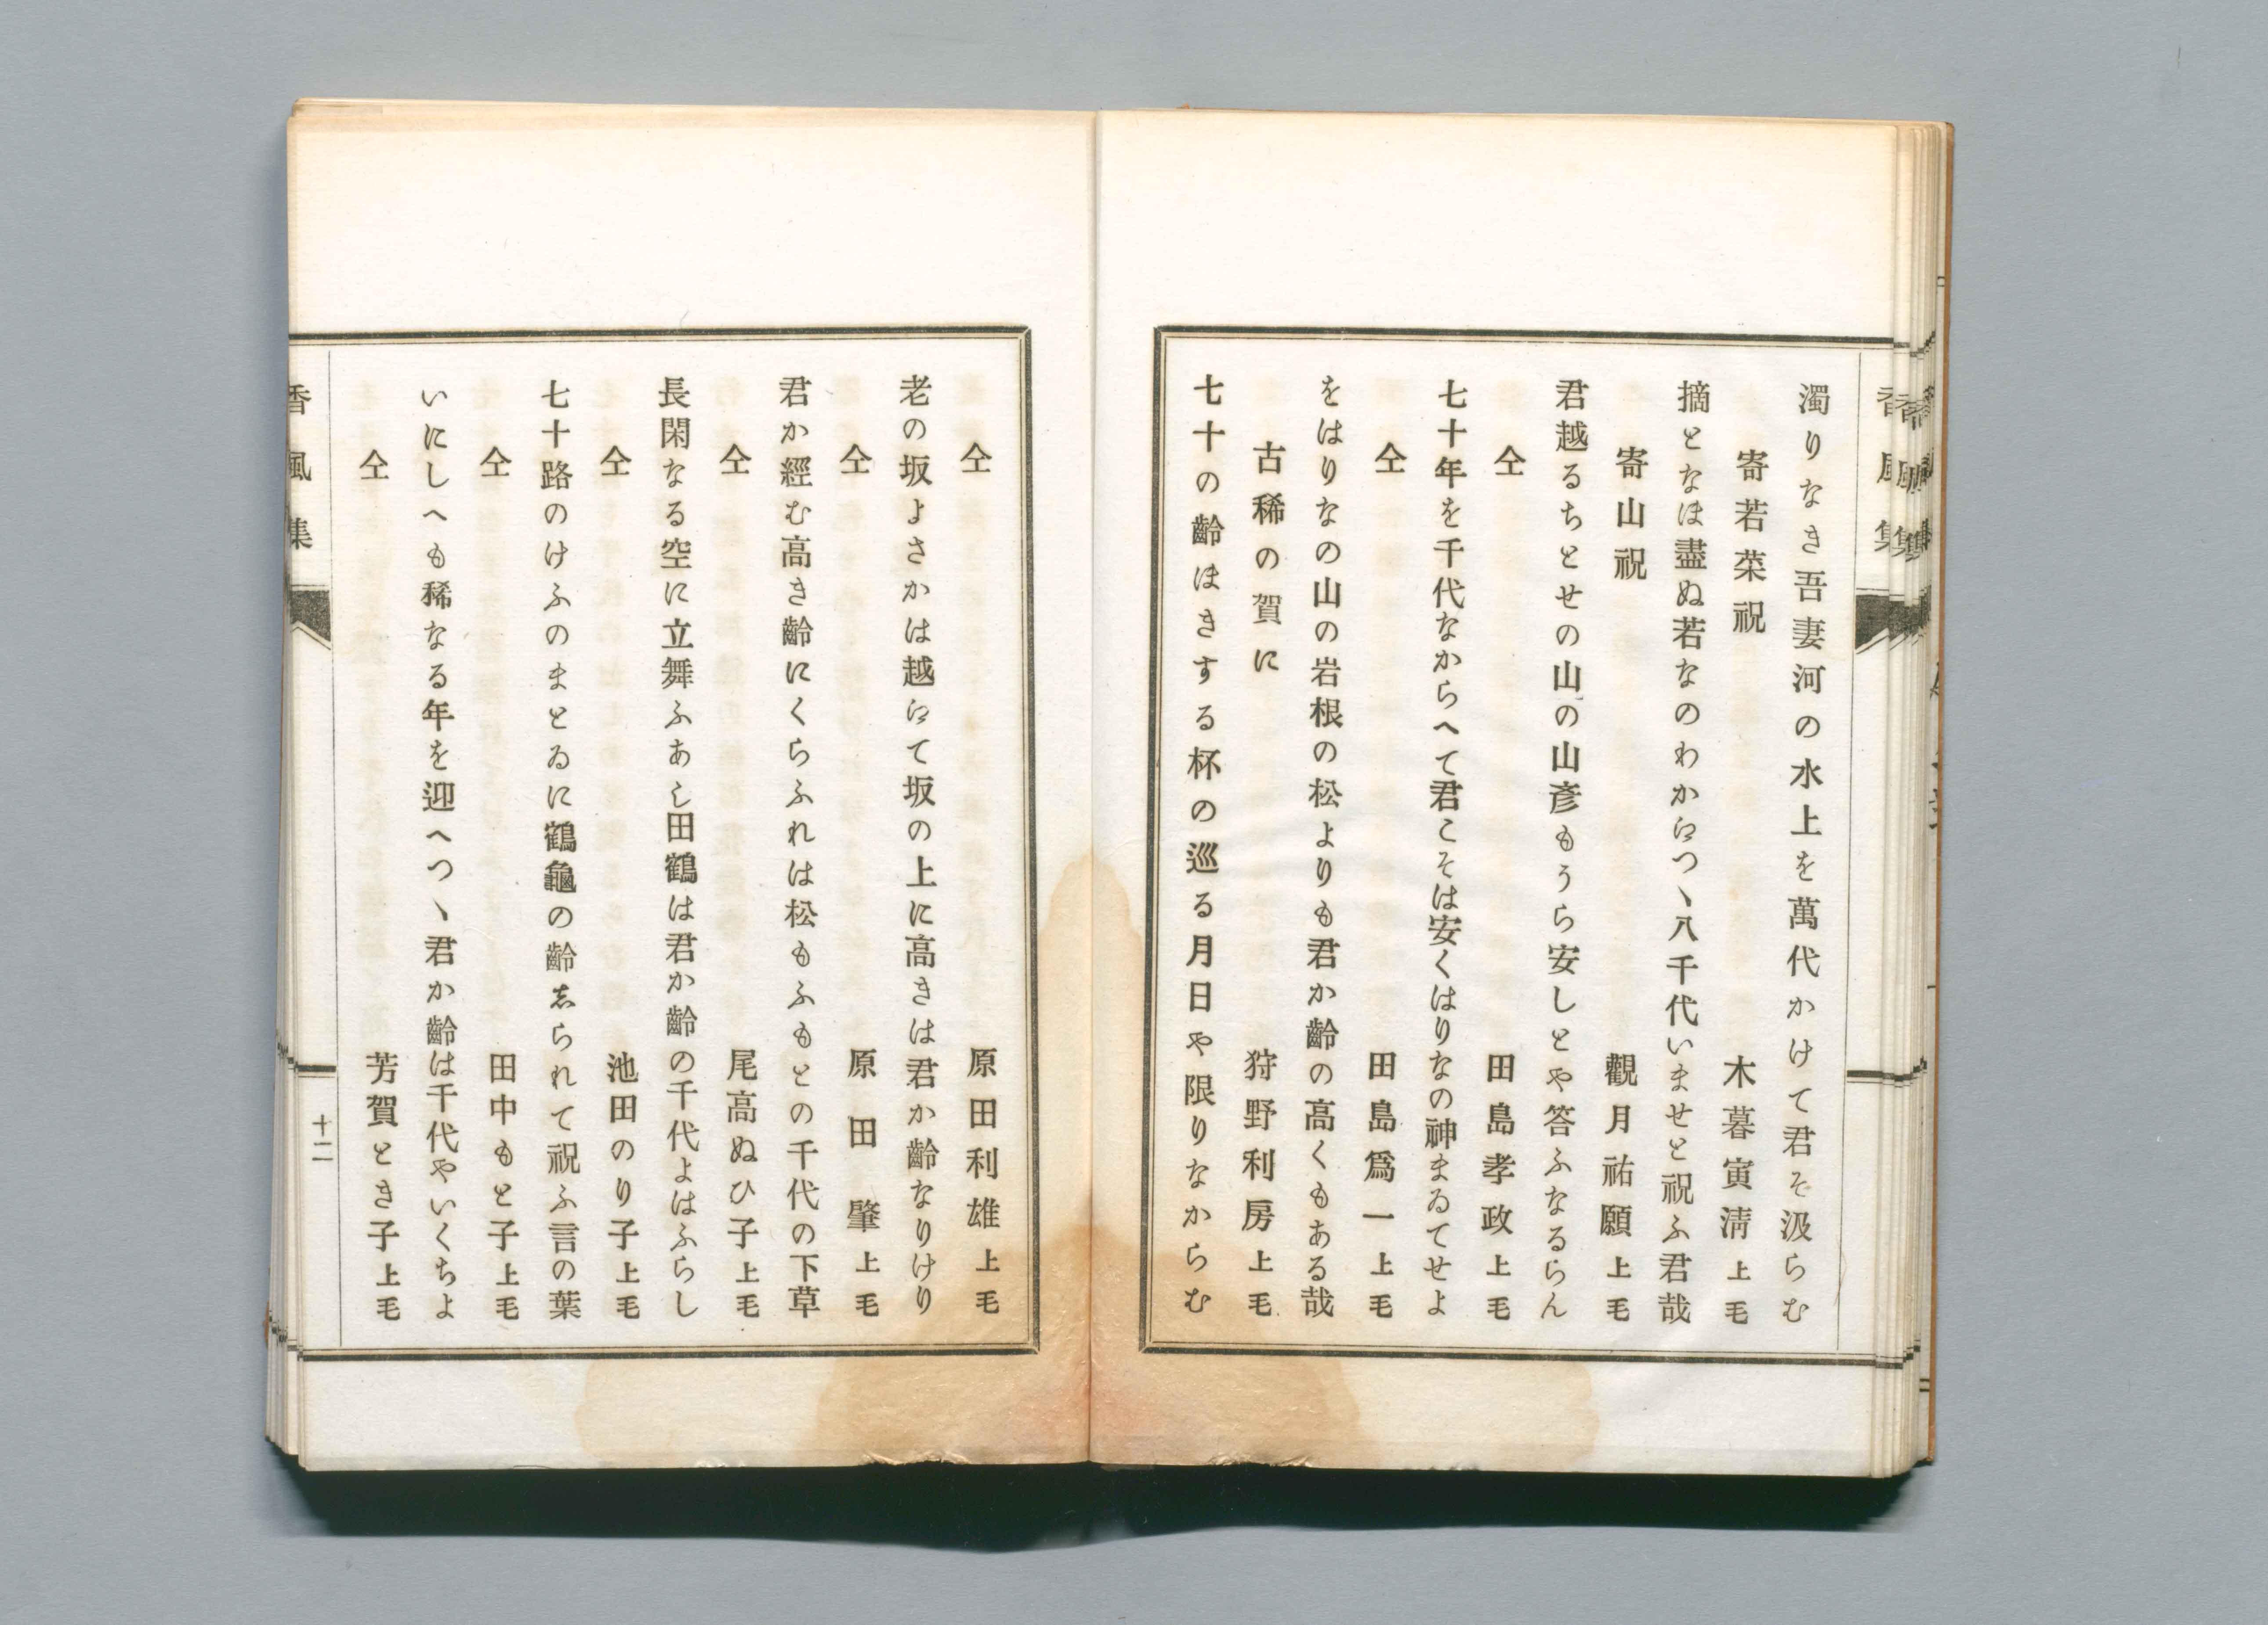 濁りなき吾妻河の水上を萬代かけて君そ汲らむ
寄若菜祝　木暮寅淸上毛
摘となほ盡ぬ若なのわかえつゝ八千代いませと祝ふ君哉
寄山祝　觀月祐願上毛
君越るちとせの山の山彥もうら安しとや答ふなるらん
仝　田島孝政上毛
七十年を千代なからへて君こそは安くはりなの神まゐてせよ
仝　田島爲一上毛
をはりなの山の岩根の松よりも君か齡の高くもある哉
古稀の賀に　狩野利房上毛
七十の齡ほきする杯の巡る月日や限りなからむ
仝　原田利雄上毛
老の坂よさかは越えて坂の上に高きは君か齡なりけり
仝　原田肇上毛
君か經む高き齡にくらふれは松もふもとの千代の下草
仝　尾高ぬひ子上毛
長閑なる空に立舞ふあし田鶴は君か齡の千代よはふらし
仝　池田のり子上毛
七十路のけふのまとゐに鶴龜の齡志られて祝ふ言の葉
仝　田中もと子上毛
いにしへも稀なる年を迎へつゝ君か齡は千代やいくちよ
仝　芳賀とき子上毛
香風集
十二